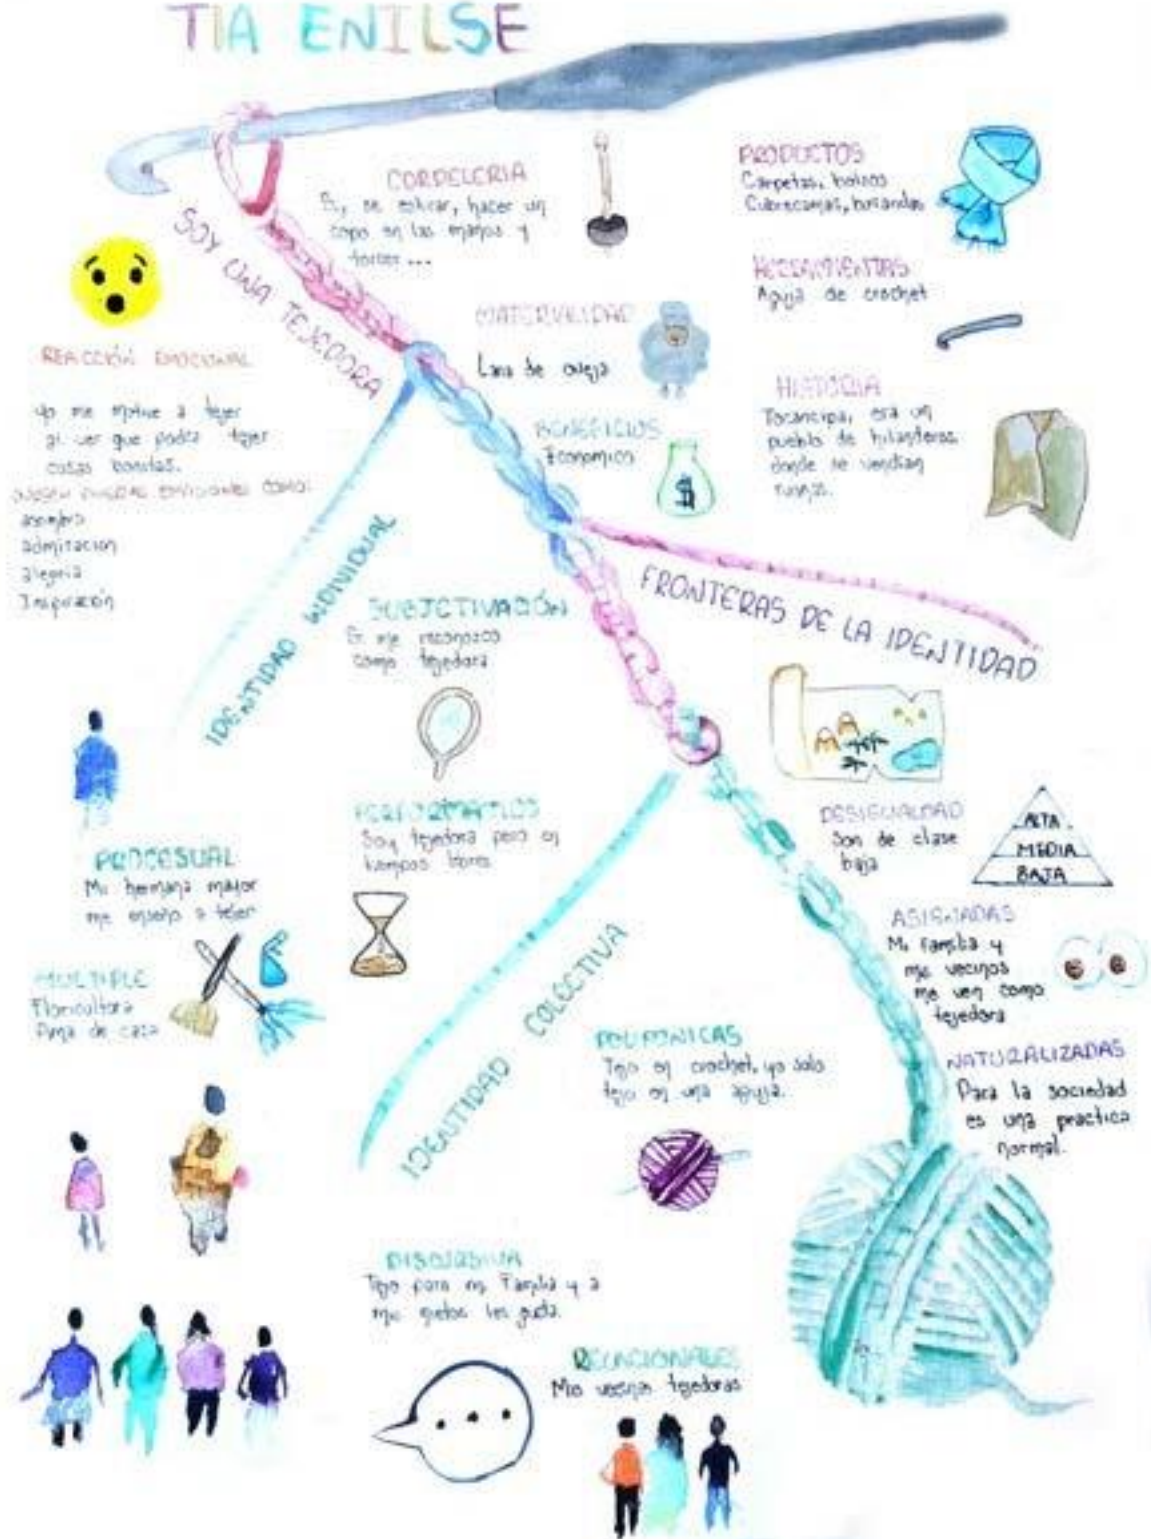 TIA ENILSE
SOY UNA TEJEDORA
CORDELERIA
Si, se estirar, hacer un
copo en las manos y
torcer ...
PRODUCTOS
Carpetas, bolsos
Cubrecamas, bufandas
HERRAMIENTAS
Aguja de crochet
MATERIALIDAD
Lana de oveja
HISTORIA
Tocancipa, era un
pueblo de hilanderos
donde se vendian
ruanas.
BENEFICIOS
Economico
$
REACCIÓN EMOCIONAL
yo me motive a tejer
al ver que podia tejer
cosas bonitas.
EMOCIONES COMO:
asombro
admiracion
alegria
Inspiración
IDENTIDAD INDIVIDUAL
SUBJETIVACIÓN
Si me reconozco
como tejedora
PERFORMATICOS
Soy tejedora pero en
tiempos libres
PROCESUAL
Mi hermana mayor
me enseño a tejer
MULTIPLE
Floricultora
Ama de casa
FRONTERAS DE LA IDENTIDAD
DESIGUALDAD
Son de clase
baja
ALTA
MEDIA
BAJA
ASIGNADAS
Mi familia y
mis vecinos
me ven como
tejedora
NATURALIZADAS
Para la sociedad
es una practica
normal.
IDENTIDAD COLECTIVA
POLIFONICAS
Tejo en crochet, yo solo
tejo en una aguja.
DISCURSIVA
Tejo para mi familia y a
mis nietos les gusta.
RELACIONALES
Mis vecinas tejedoras